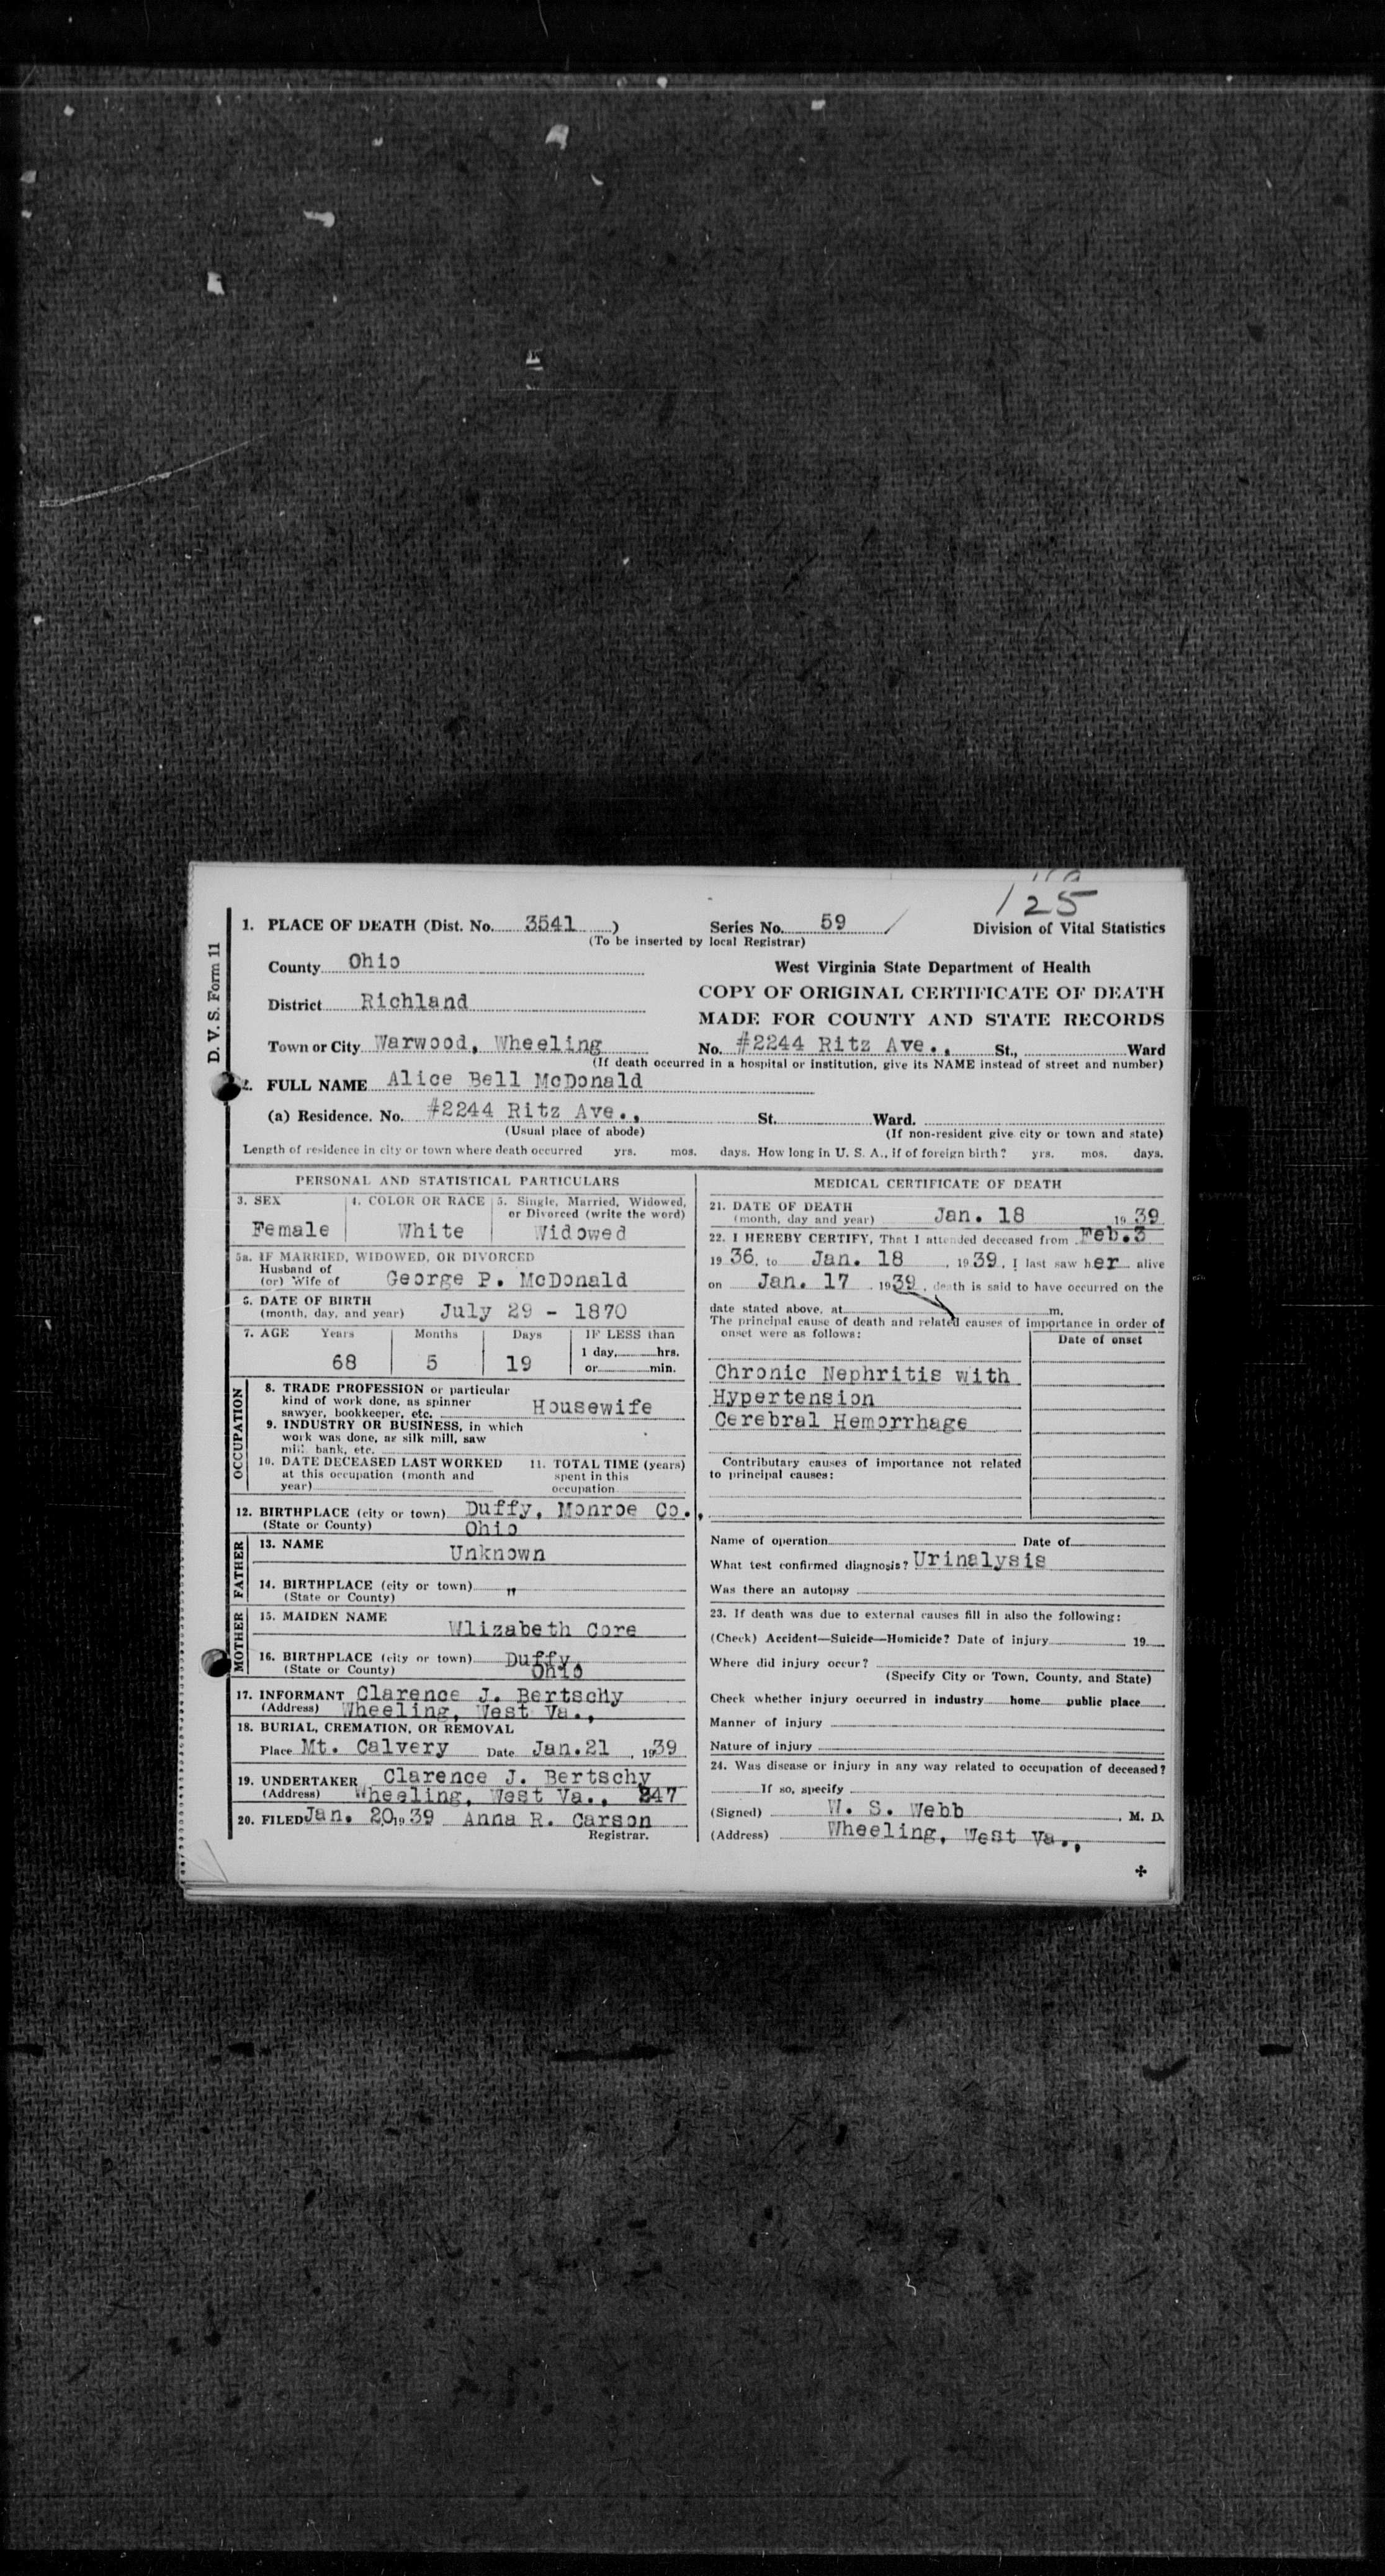 125
D. V. S. Form 11
1. PLACE OF DEATH (Dist. No. 3541 ) Series No. 59 Division of Vital Statistics
(To be inserted by local Registrar)
County Ohio West Virginia State Department of Health
District Richland COPY OF ORIGINAL CERTIFICATE OF DEATH
MADE FOR COUNTY AND STATE RECORDS
Town or City Warwood, Wheeling No. #2244 Ritz Ave., St., Ward
(If death occurred in a hospital or institution, give its NAME instead of street and number)
2. FULL NAME Alice Bell McDonald
(a) Residence. No. #2244 Ritz Ave., St. Ward.
(Usual place of abode) (If non-resident give city or town and state)
Length of residence in city or town where death occurred yrs. mos. days. How long in U. S. A., if of foreign birth? yrs. mos. days.
PERSONAL AND STATISTICAL PARTICULARS
3. SEX 4. COLOR OR RACE 5. Single, Married, Widowed,
or Divorced (write the word)
Female White Widowed
5a. IF MARRIED, WIDOWED, OR DIVORCED
Husband of
(or) Wife of George P. McDonald
6. DATE OF BIRTH
(month, day, and year) July 29 - 1870
7. AGE Years Months Days IF LESS than
1 day, hrs.
68 5 19 or min.
OCCUPATION
8. TRADE PROFESSION or particular
kind of work done, as spinner
sawyer, bookkeeper, etc. Housewife
9. INDUSTRY OR BUSINESS, in which
work was done, as silk mill, saw
mill bank, etc.
10. DATE DECEASED LAST WORKED
at this occupation (month and
year)
11. TOTAL TIME (years)
spent in this
occupation
12. BIRTHPLACE (city or town) Duffy, Monroe Co.,
(State or County) Ohio
FATHER
13. NAME Unknown
14. BIRTHPLACE (city or town) "
(State or County)
MOTHER
15. MAIDEN NAME Wlizabeth Core
16. BIRTHPLACE (city or town) Duffy
(State or County) Ohio
17. INFORMANT Clarence J. Bertschy
(Address) Wheeling, West Va.,
18. BURIAL, CREMATION, OR REMOVAL
Place Mt. Calvery Date Jan.21, 1939
19. UNDERTAKER Clarence J. Bertschy
(Address) Wheeling, West Va., 247
20. FILED Jan. 20, 1939 Anna R. Carson
Registrar.
MEDICAL CERTIFICATE OF DEATH
21. DATE OF DEATH
(month, day and year) Jan. 18 1939
22. I HEREBY CERTIFY, That I attended deceased from Feb.3
1936, to Jan. 18, 1939, I last saw her alive
on Jan. 17, 1939, death is said to have occurred on the
date stated above, at m.
The principal cause of death and related causes of importance in order of
onset were as follows: Date of onset
Chronic Nephritis with
Hypertension
Cerebral Hemorrhage
Contributory causes of importance not related
to principal causes:
Name of operation Date of
What test confirmed diagnosis? Urinalysis
Was there an autopsy
23. If death was due to external causes fill in also the following:
(Check) Accident—Suicide—Homicide? Date of injury 19
Where did injury occur?
(Specify City or Town, County, and State)
Check whether injury occurred in industry home public place
Manner of injury
Nature of injury
24. Was disease or injury in any way related to occupation of deceased?
If so, specify
(Signed) W. S. Webb, M. D.
(Address) Wheeling, West Va.,